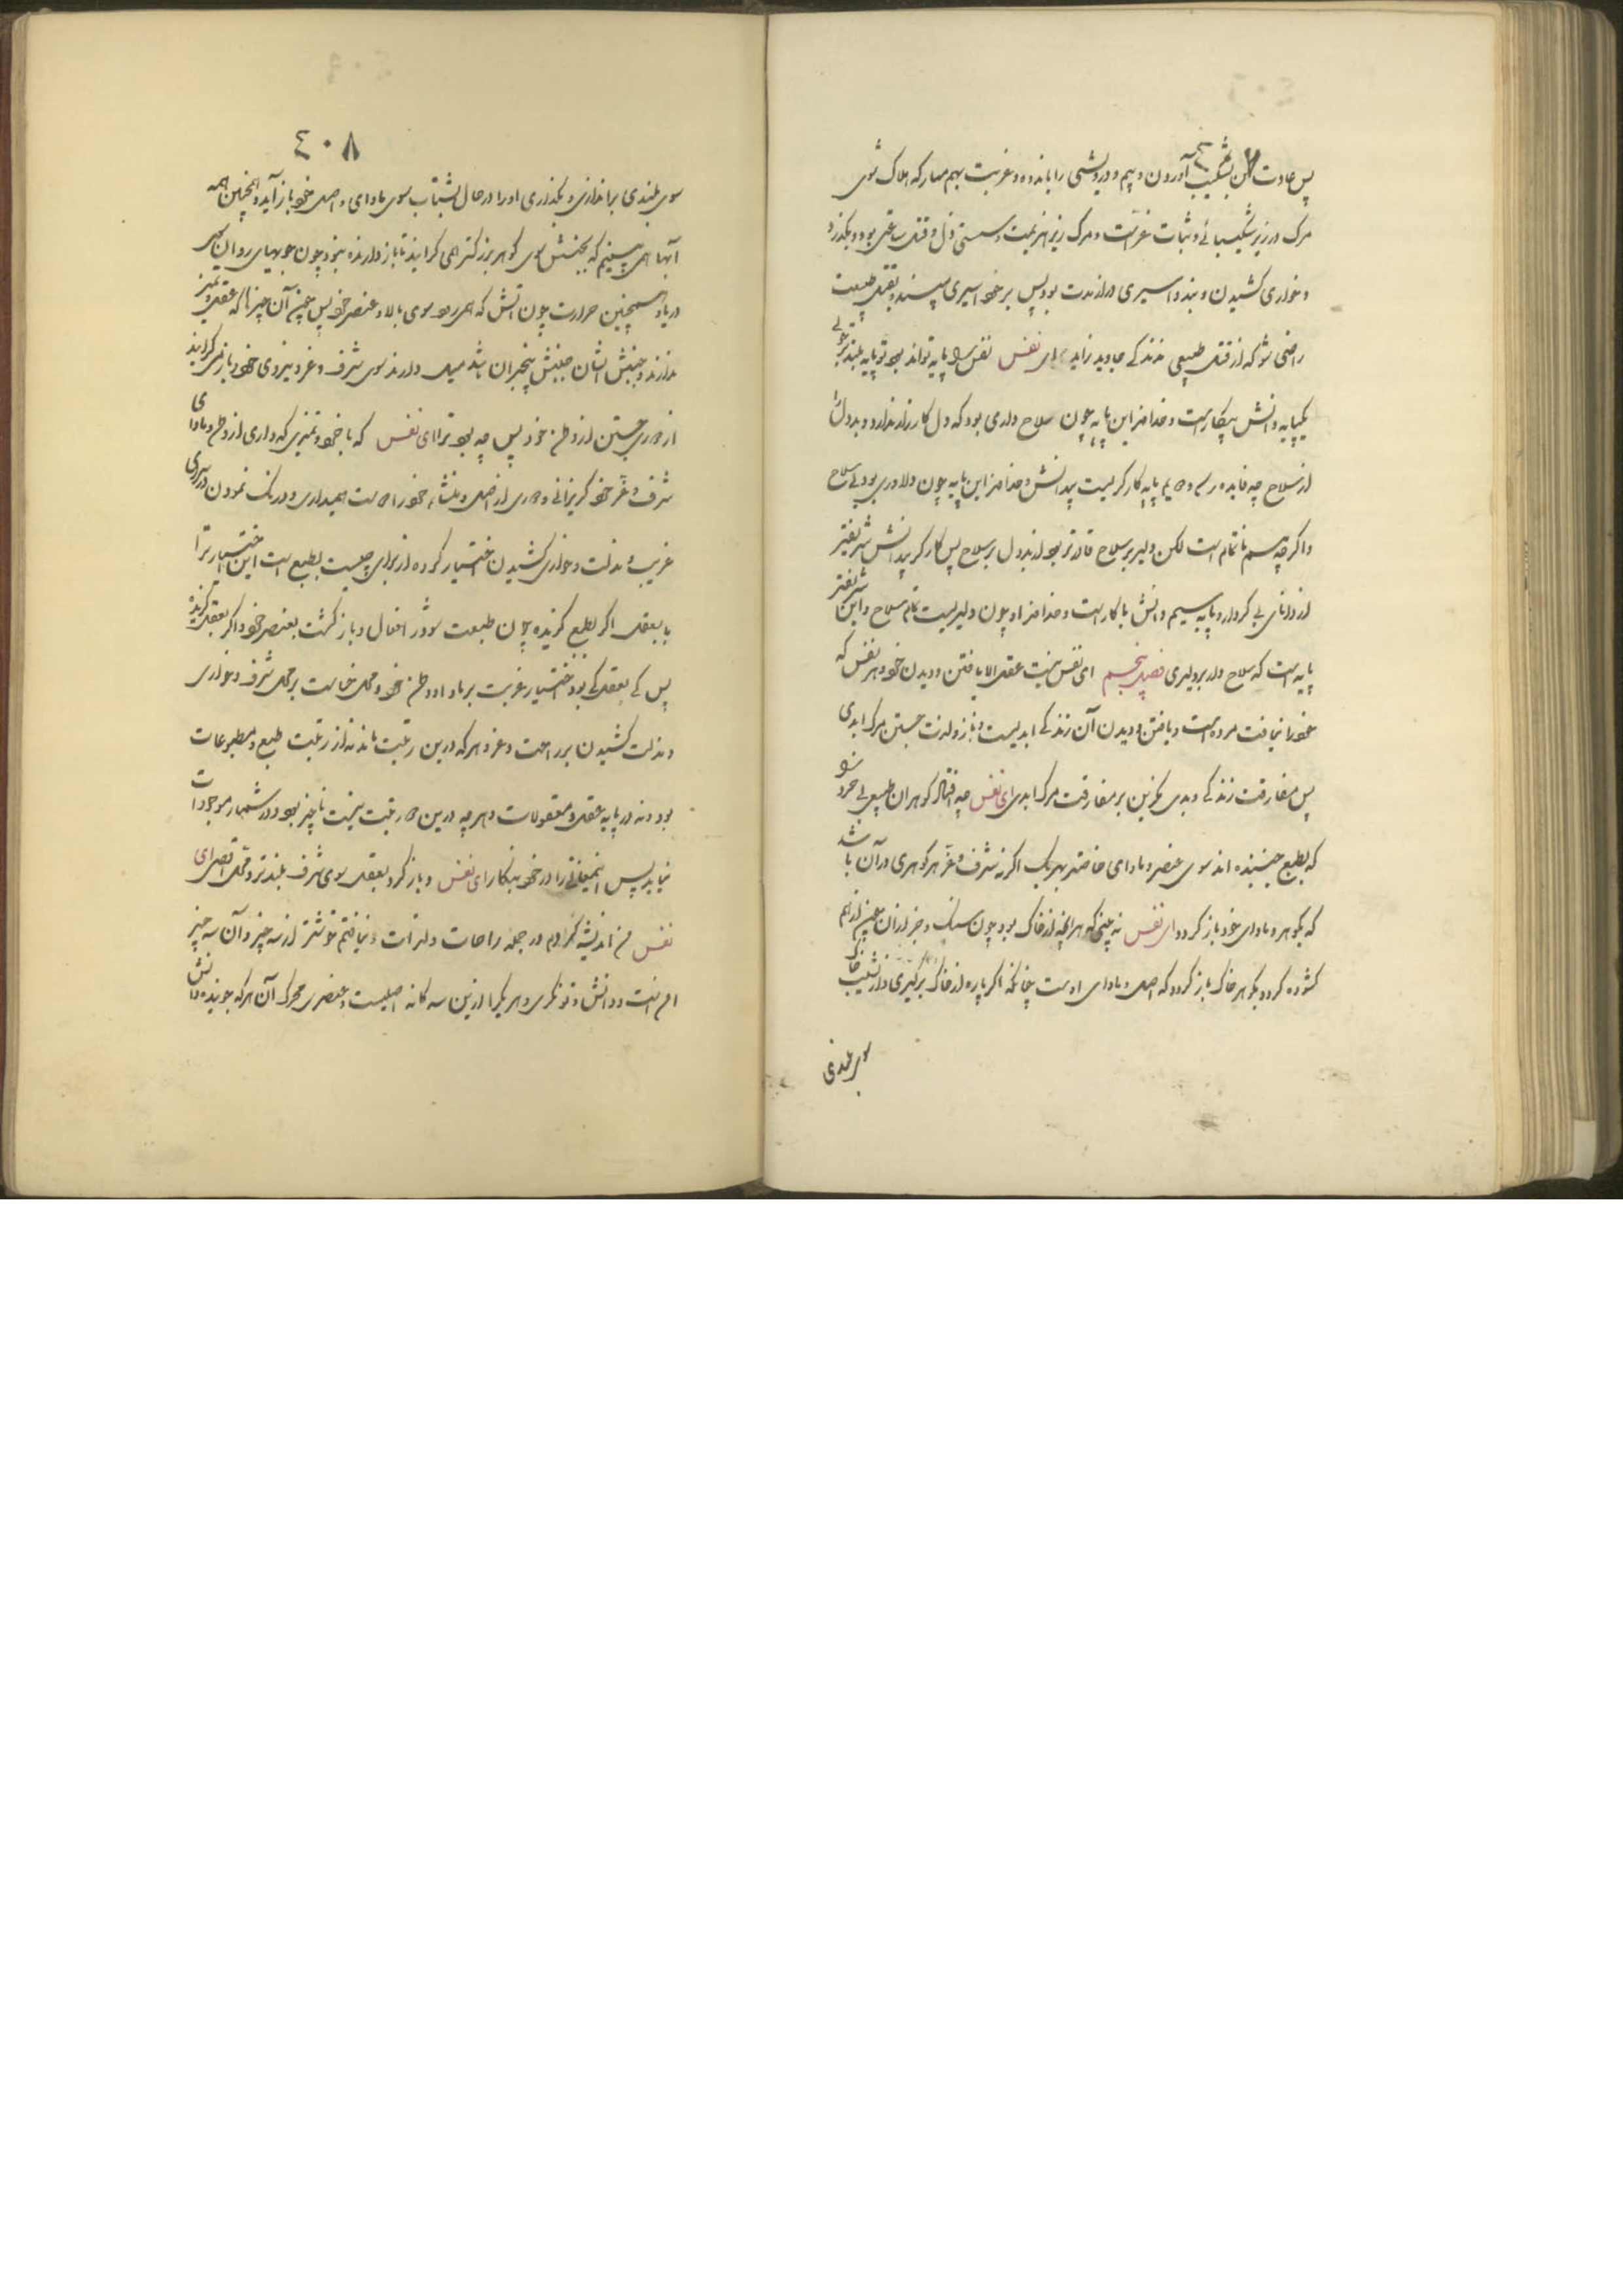 پس عادت کن بشکیب آوردن و بیم و درویشی را باندوه و غربت بهم میار که هلاک شوی
مرگ در زیر شکیبائی و ثبات عزتست و مرگ زیر هزیمت و سستی ذل و قتل ساعتی بود و بگذرد
و خواری کشیدن و بند و اسیری دراز مدت بود پس بر خود اسیری مپسند و بقتل طبیعت
راضی شو که از قتل طبیعی زندگی جاوید زاید ای نفس نفس را سه پایه تواند بود تو پایه بلندتر جوی
یکپایه دانش بیکارست و خداوند این پایه چون سلاح داری بود که دل کارزار ندارد و بددل را
از سلاح چه فایده رسد و دویم پایه کارگریست بیدانش و خداوند این پایه چون دلاوری بود بی سلاح
و اگر چه هم ناتمام است لکن دلیر بر سلاح قادرتر بود از بددل بر سلاح پس کارگر بیدانش شریفتر
از دانای بی کردار و پایه سیم دانش باکارست و خداوند او چون دلیریست تمام سلاح و این شریفتر
پایه است که سلاح دارد و دلیری فصل پنجم ای نفس نیست عقل الا یافتن و دیدن خود و هر نفس که
خود را نیافت مرده است و یافتن و دیدن آن زندگی ابدیست و ناز و لذت جستن مرگ ابدی
پس مفارقت زندگی و بدی مگزین بر مفارقت مرگ ابدی ای نفس چه افتاد گوهران طبیعی بی خرد را
که بطبع جنبنده اند سوی عنصر و ماوای خاصه هر یک اگر نه شرف و عز هر گوهری در آن باشد
که بگوهر و ماوای خود باز گردد ای نفس نه بینی که هرانچه از خاک بود چون سنگ و جز از آن چون از هم
گشوده گردد بگوهر خاک باز گردد که اصل و ماوای اوست چنانکه اگر پاره از خاک برگیری و از نشیب خاک
سوی بلندی
٤٠٨
سوی بلندی براندازی و بگذاری او را در حال بشتاب سوی ماوای و اصل خود باز آید و همچنین همه
آبها همی بینیم که بجنبش سوی گوهر بزرگتر همی گرایند تا باز دارنده نبود چون جویهای روان سوی
دریا و همچنین حرارت چون آتش که همی رود سوی بالا و عنصر خود پس چون آن چیزها که عقل و تمیز
ندارند و جنبش ایشان جنبش بیخبران باشد میل دارند سوی شرف و عز و نیروی خود و باز نمی گرایند
از دوری جستن از وطن خود پس چه بود ترا ای نفس که با خرد و تمیزی که داری از وطن و ماوای
شرف و عز خود گریزانی و دوری از اصل و منشاء خود را دوست همیداری و درنگ نمودن در سرای
غریب و مذلت و خواری کشیدن اختیار کرده از برای چیست بطبع است این اختیار ترا
یا بعقل اگر بطبع گزیده چون طبیعت شو در افعال و بازگشت بعنصر خود و اگر بعقل گزیده
پس کی بعقل بود اختیار غربت بر ماوا و وطن خود و محل خساست بر محل شرف و خواری
و مذلت کشیدن بر راحت و عز و هر که درین رتبت ماند نه از رتبت طبع و مطبوعات
بود و نه در پایه عقل و معقولات و هر چه درین دو رتبت نیست ناچیز بود و در شمار موجودات
نیاید پس این معانی را در خود بنگار ای نفس و باز گرد بعقل سوی شرف بلندتر و محل اقصی ای
نفس من اندیشه کردم در جمله راحات و لذات و نیافتم خوشتر از سه چیز و آن سه چیز
امنست و دانش و توانگری و هر یک را ازین سه گانه اصلیست و عنصری محرک آن هر که جوینده دانش